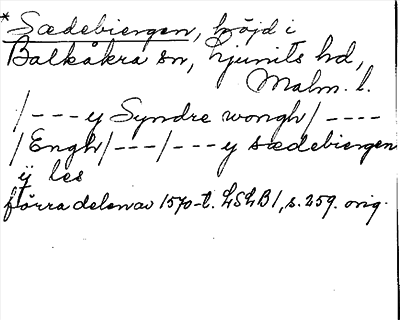 * Sædebiergen, höjd i
Balkåkra sn, Ljunits hd,
Malm. l.
/--- y Syndre wongh/----
/Engh/---/--- y sædebiergen
ÿ les
förra delen av 1570-t. LSLB 1, s. 259. orig.